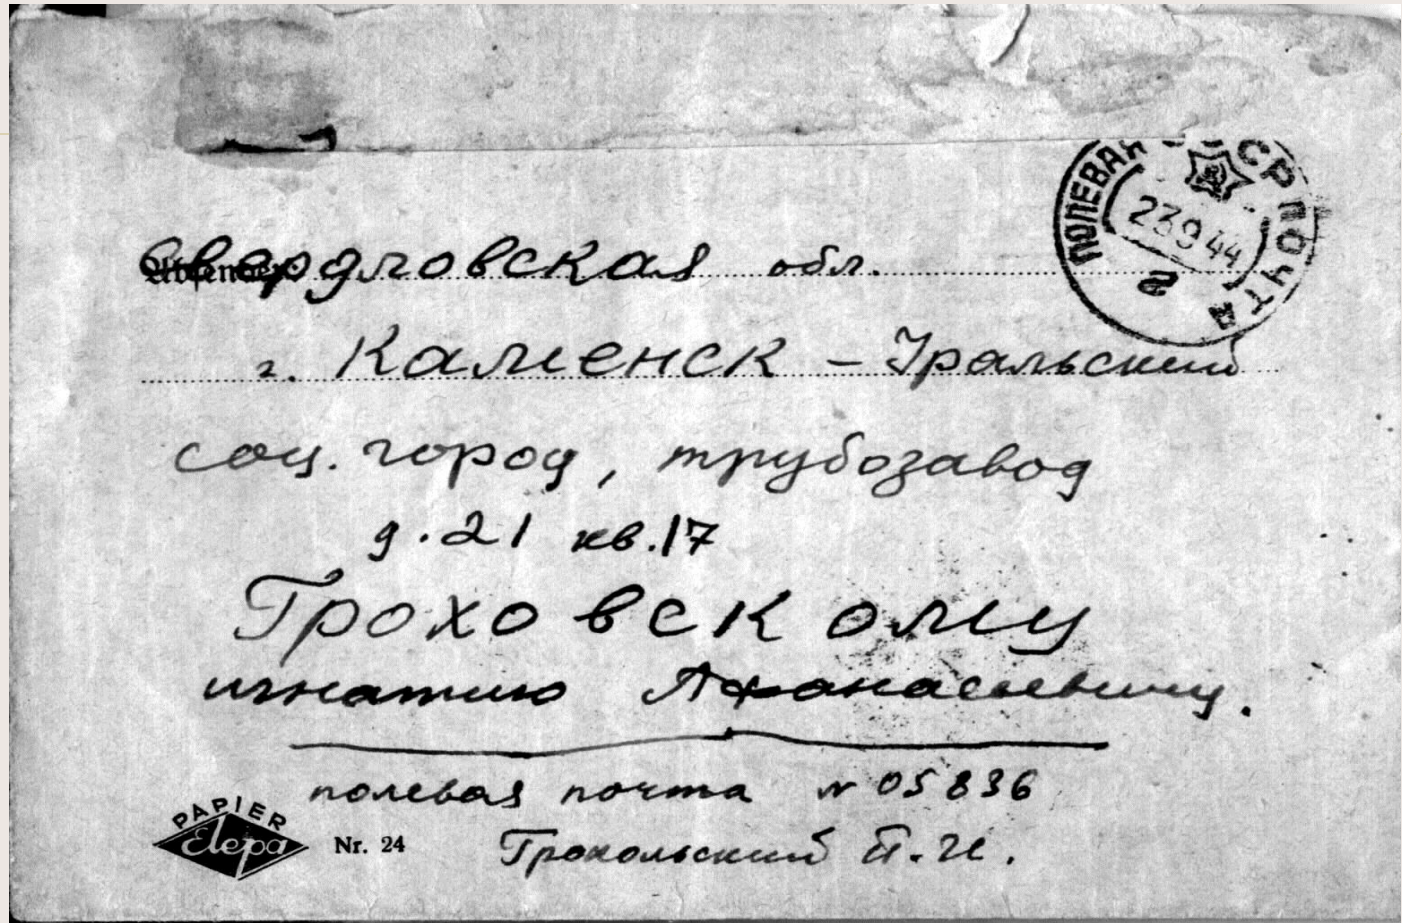 ПОЛЕВАЯ СР ПОЧТА
23 9 44
г
Свердловская обл.
г. Каменск - Уральский
соц. город, трубозавод
д. 21 кв. 17
Гроховскому
игнатию Афанасьевичу.
полевая почта № 05836
PAPIER
Elepa Nr. 24
П. И.